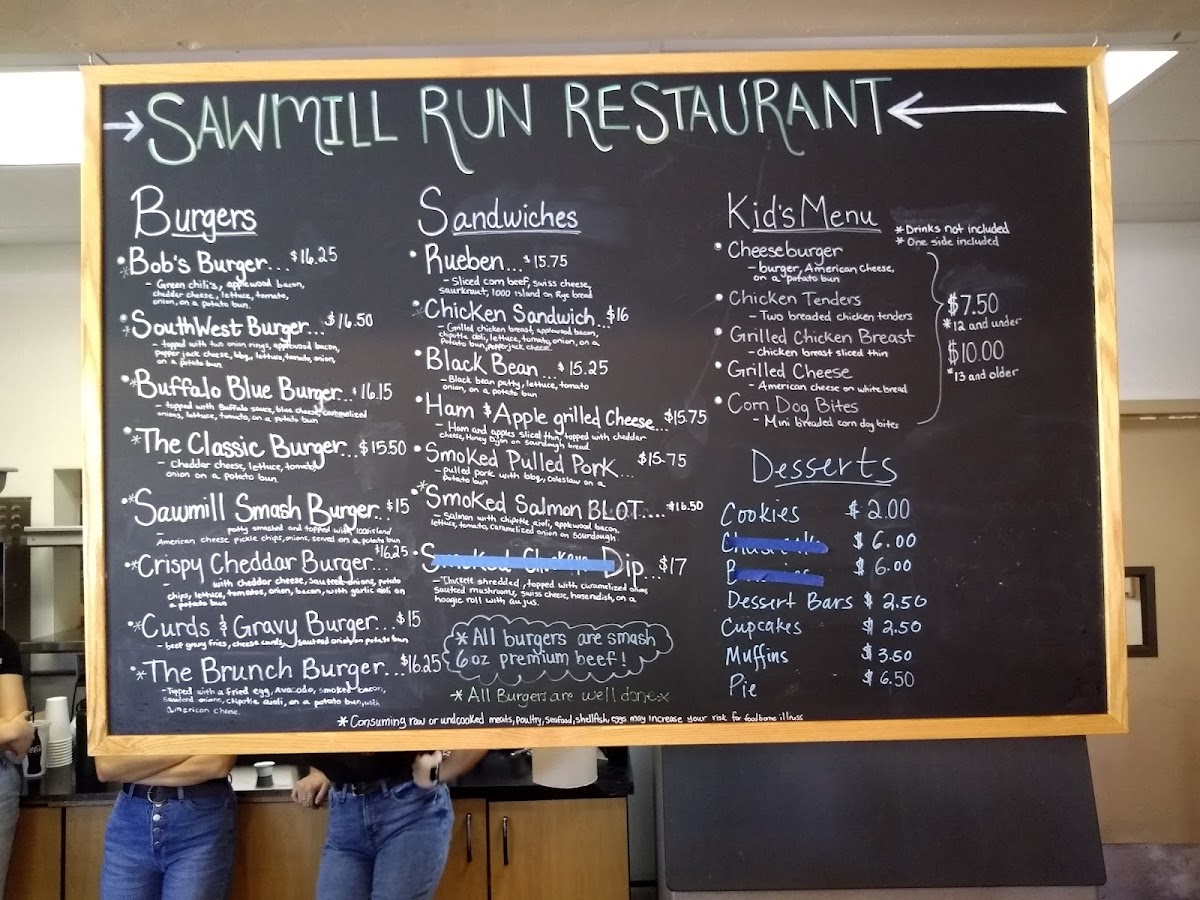 SAWMILL RUN RESTAURANT
Burgers
* Bob's Burger... $16.25
- Green chili's, applewood bacon,
chedder cheese, lettuce, tomato,
onion, on a potato bun.
* SouthWest Burger... $16.50
- topped with two onion rings, applewood bacon,
pepper jack cheese, bbq, lettuce, tomato, onion,
on a potato bun
* Buffalo Blue Burger... $16.15
- topped with Buffalo sauce, blue cheese, caramelized
onions, lettuce, tomato, on a potato bun
* The Classic Burger... $15.50
- Cheddar cheese, lettuce, tomato,
onion on a potato bun.
* Sawmill Smash Burger... $15
patty smashed and topped with 1000 island
American cheese pickle chips, onions, served on a potato bun
* Crispy Cheddar Burger... $16.25
with cheddar cheese, sauteed onions, potato
chips, lettuce, tomatoes, onion, bacon, with garlic aoli on
a potato bun
* Curds & Gravy Burger... $15
- beef gravy fries, cheese curds, sauteed onion on potato bun
* The Brunch Burger... $16.25
- Topped with a fried egg, Avacado, smoked bacon,
sauteed onions, chipotle aioli, on a potato bun, with
American cheese.
Sandwiches
Rueben... $15.75
- Sliced corn beef, swiss cheese,
saurkraut, 1000 island on Rye bread
* Chicken Sandwich... $16
- Grilled chicken breast, applewood bacon,
chipotle aoli, lettuce, tomato, onion, on a
Potato bun, pepperjack cheese.
Black Bean... $15.25
- Black bean patty, lettuce, tomato
onion, on a potato bun
Ham & Apple grilled Cheese... $15.75
- Ham and apples sliced thin, topped with cheddar
cheese, Honey Dijon on sourdough bread
Smoked Pulled Pork... $15.75
- pulled pork with bbq, coleslaw on a
potato bun
* Smoked Salmon BLOT.... $16.50
- Salmon with chiptle aioli, applewood bacon,
lettuce, tomato, caramelized onion on sourdough.
Dip... $17
shredded, topped with caramelized onions
sauteed mushrooms, swiss cheese, on a
hoagie roll with au jus.
* All burgers are smash
6 oz premium beef!
* All Burgers are well done *
Kid's Menu
* Drinks not included
* One side included
Cheeseburger
- burger, American cheese,
on a potato bun
Chicken Tenders
- Two breaded chicken tenders
Grilled Chicken Breast
- chicken breast sliced thin
Grilled Cheese
- American cheese on white bread
Corn Dog Bites
- Mini breaded corn dog bites
$7.50
* 12 and under
$10.00
* 13 and older
Desserts
Cookies $2.00
$6.00
$6.00
Dessert Bars $2.50
Cupcakes $2.50
Muffins $3.50
Pie $6.50
* Consuming raw or undcooked meats, poultry, seafood, shellfish, eggs may increase your risk for foodborne illness